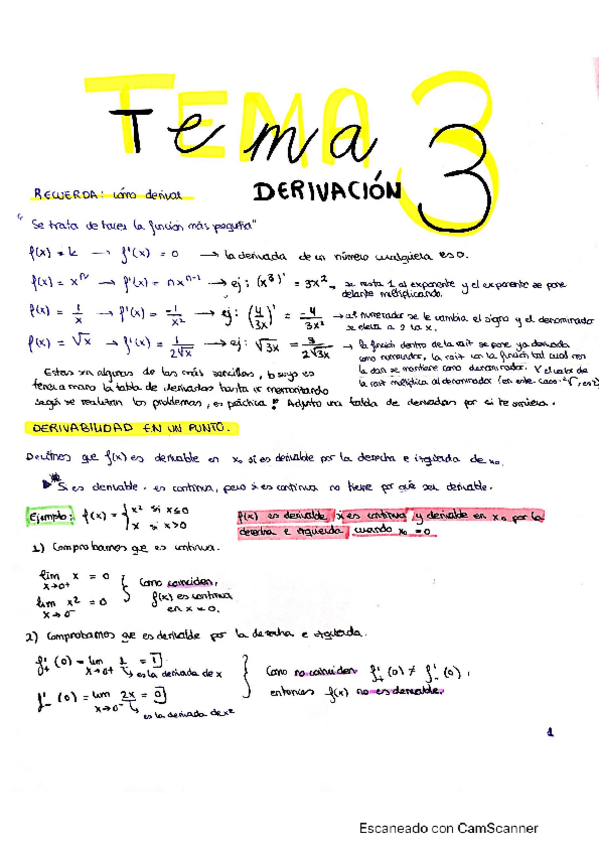 TEMA 3
Tema 3
DERIVACIÓN
RECUERDA: cómo derivar
"Se trata de hacer la función más pequeña"
f(x) = k → f'(x) = 0 → la derivada de un número cualquiera es 0.
f(x) = xⁿ → f'(x) = nxⁿ⁻¹ → ej: (x³)' = 3x², → se resta 1 al exponente y el exponente se pone
delante multiplicando.
f(x) = 1/x → f'(x) = -1/x² → ej: (4/3x)' = -4/3x² → al numerador se le cambia el signo y el denominador
se eleva a 2 la x.
f(x) = √x → f'(x) = 1/2√x → ej: √3x = 3/2√3x → la función dentro de la raíz se pone ya derivada
como numerador, la raíz con la función tal cual nos
la dan se mantiene como denominador. Y el valor de
la raíz multiplica al denominador (en este caso ²√, es 2)
Estas son algunas de las más sencillas, lo suyo es
tener a mano la tabla de derivadas hasta ir memorizando
según se realizan los problemas, es práctica! Adjunto una tabla de derivadas por si te sirviera.
DERIVABILIDAD EN UN PUNTO.
Decimos que f(x) es derivable en x₀ si es derivable por la derecha e izquierda de x₀.
Si es derivable, es continua, pero si es continua no tiene por qué ser derivable.
Ejemplo: f(x) = { x² si x≤0
x si x>0
f(x) es derivable si es continua y derivable en x₀ por la
derecha e izquierda cuando x₀ = 0
1) Comprobamos que es continua.
lim x→0⁺ x = 0
lim x→0⁻ x² = 0
} Como coinciden,
f(x) es continua
en x = 0.
2) Comprobamos que es derivable por la derecha e izquierda.
f'₊(0) = lim x→0⁺ 1 = 1
↳ es la derivada de x
f'₋(0) = lim x→0⁻ 2x = 0
↳ es la derivada de x²
} Como no coinciden f'₊(0) ≠ f'₋(0),
entonces f(x) no es derivable.
1
Escaneado con CamScanner